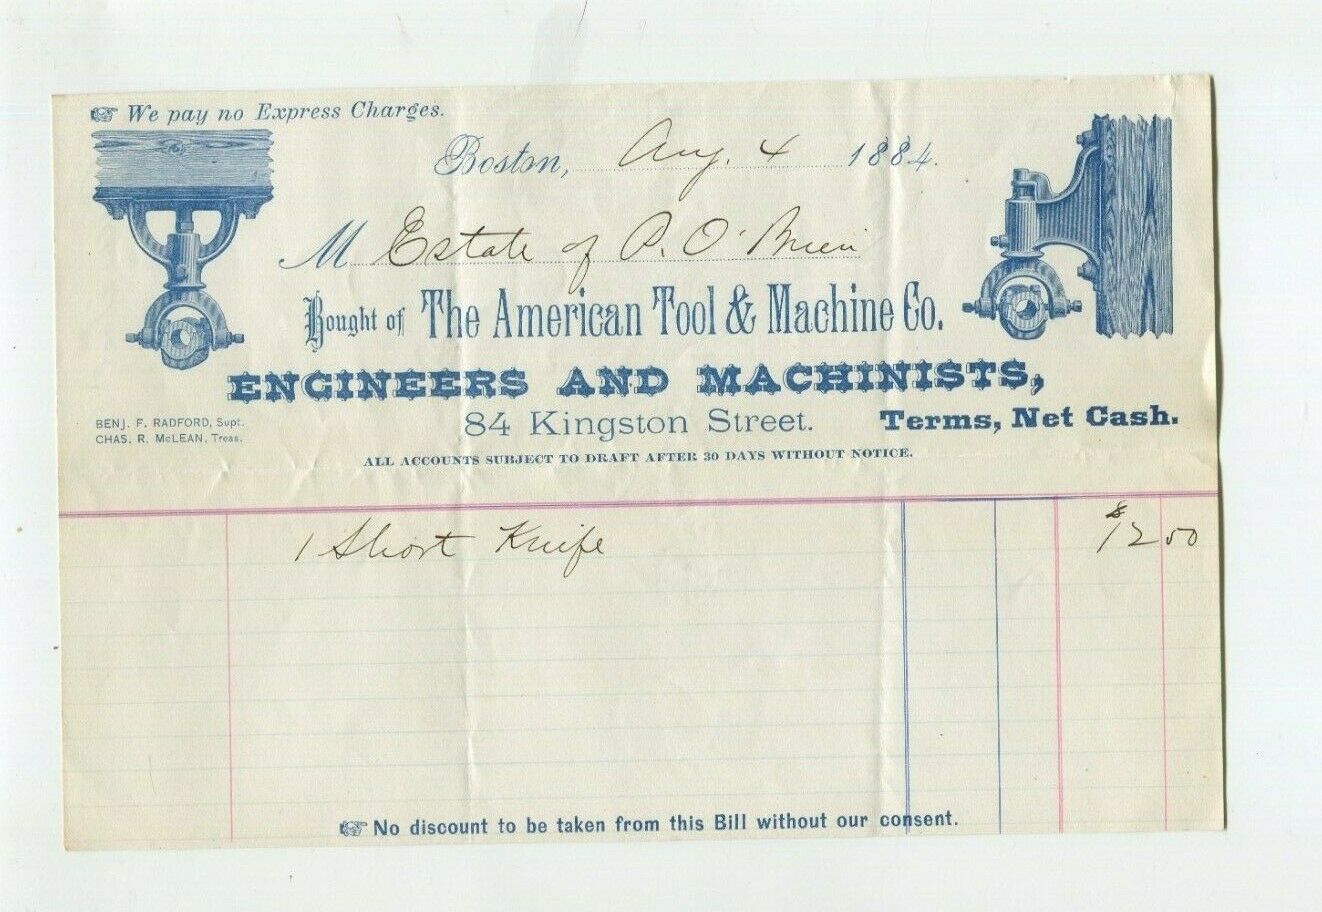 We pay no Express Charges.
Boston, Aug. 4 1884.
M Estate of P. O'Brien
Bought of The American Tool & Machine Co.
ENGINEERS AND MACHINISTS,
84 Kingston Street. Terms, Net Cash.
BENJ. F. RADFORD, Supt.
CHAS. R. McLEAN, Treas.
ALL ACCOUNTS SUBJECT TO DRAFT AFTER 30 DAYS WITHOUT NOTICE.
1 Short Knife $12 50
No discount to be taken from this Bill without our consent.